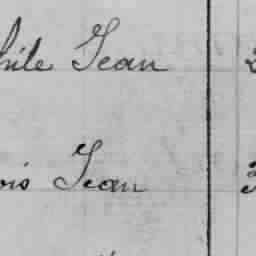 hile Jean 2
ois Jean 3